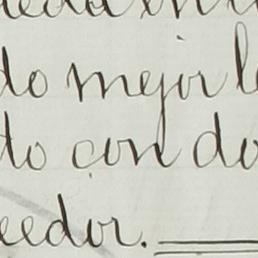 do mejor le
do con do
eedor.